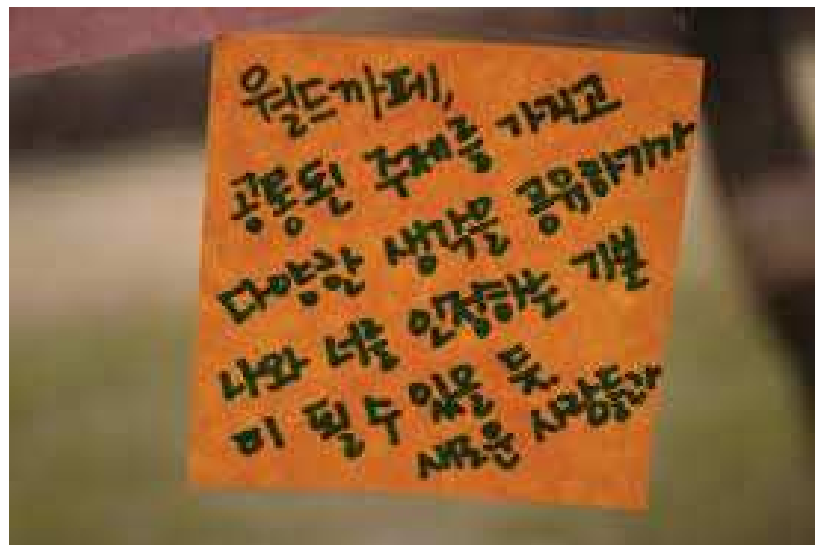 월드까페,
공통된 주제를 가지고
다양한 생각을 공유하기가
나와 너를 인정하는 기본
이 될 수 있을 듯.
새로운 사람들과